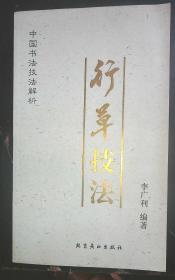 中国书法技法解析
行草技法
李广利 编著
北京美术出版社